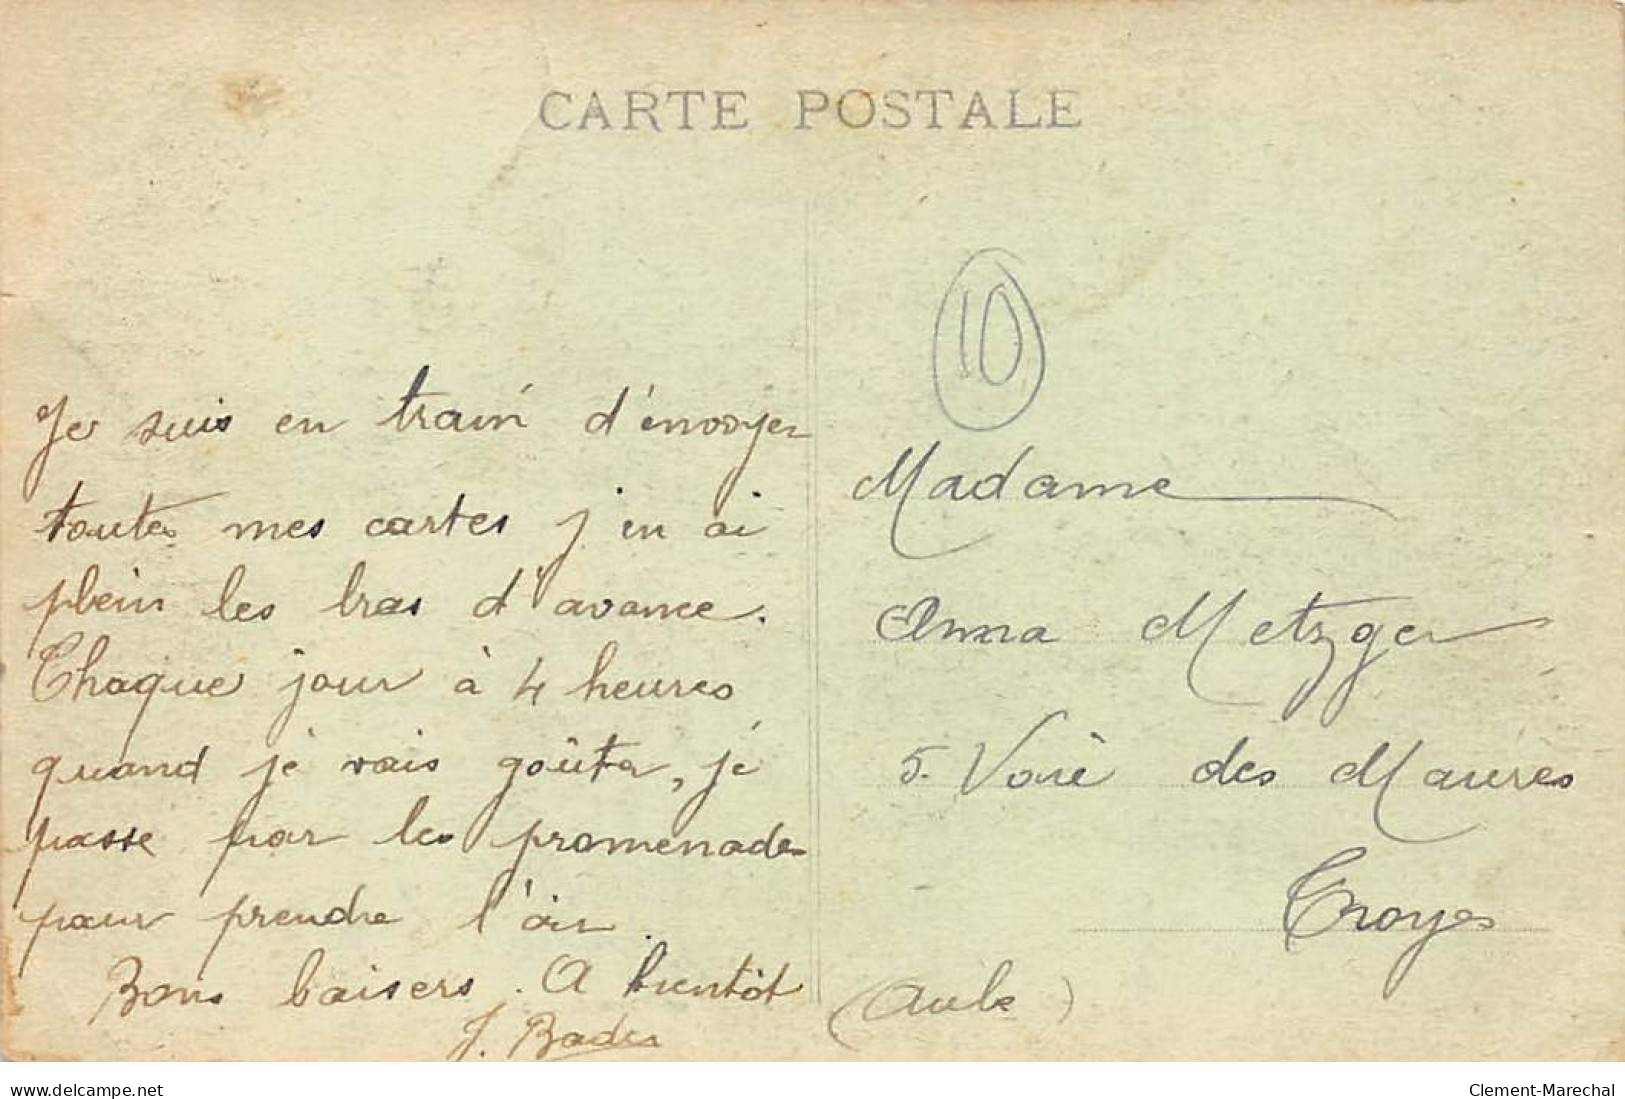 CARTE POSTALE
10
Je suis en train d'envoyer
toutes mes cartes j'en ai
plein les bras d'avance.
Chaque jour à 4 heures
quand je vais goûter, je
passe par les promenades
pour prendre l'air.
Bons baisers. A bientôt
J. Bader
Madame
Anna Metzger
5. Voie des Maures
Troyes
(Aube)
www.delcampe.net
Clement-Marechal